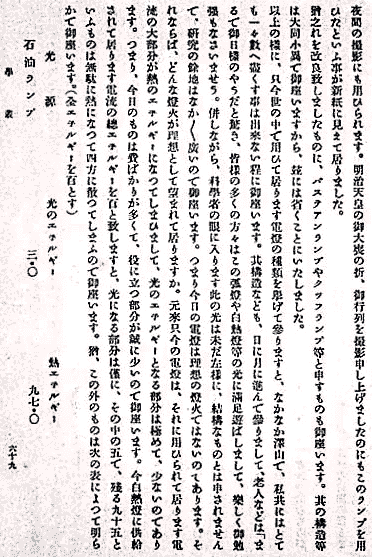 夜間の撮影にも用ひられます。明治天皇の御大喪の折、御行列を撮影申し上げましたのにもこのランプを用
ひたといふ事が新紙に見えて居りました。
猶之れを改良致しましたものに、バスチアンランプやクックランプ等と申すものも御座います。其の構造等
は大同小異で御座いますから、玆には省くことにいたしました。
以上の樣に、只今世の中で用ひて居ります電燈の種類を擧げて參りますと、なかなか澤山で、私共にはとて
も一々數へ盡くす事は出來ない程に御座います。其構造なども、日に月に進んで參りまして、老人などは「ま
るで御日樣のやうだと驚き、皆様の多くの方々はこの弧燈や白熱燈等の光に滿足遊ばしまして、樂しく御勉
强もなさいませう。併しながら、科學者の眼に入ります此の光は未だ左様に、結構なものとは申されません
で、研究の餘地はなか〱廣いので御座います。つまり今日の電燈は理想の燈火ではないのであります。そ
れならば、どんな燈火が理想として望まれて居りますか。元來只今の電燈は、それに用ひられて居ります電
流の大部分が熱のエネルギーになつてしまひまして、光のエネルギーとなる部分は極めて、少ないのであり
ます。つまり、今日のものは費ばかりが多くて、役に立つ部分が誠に少いので御座います。今白熱燈に供給
されて居ります電流の總エネルギーを百と致しますと、光になる部分は僅に、その中の五で、殘る九十五と
いふものは無駄に熱になつて四方に散つてしまふので御座います。猶、この外のものは次の表によつて明ら
かで御座います。(全エネルギーを百とす)
光源 光のエネルギー 熱エネルギー
石油ランプ 三・〇 九七・〇
學叢 六十九